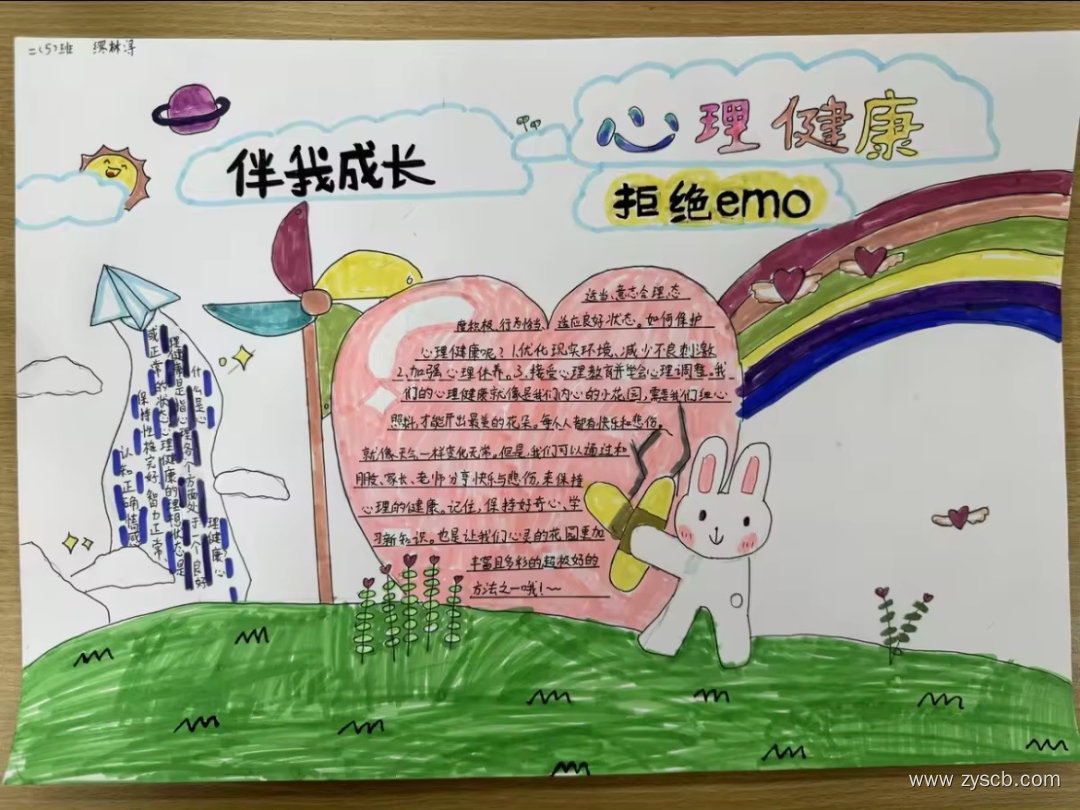 二(5)班
心理健康
伴我成长
拒绝emo
什么是心
理健康?心
理健康是指心理各个方面处于一个良好
或正常的状态。心理健康的理想状态是
保持性格完好、智力正常、
认知正确、情感
适当、意志合理、态
度积极、行为恰当、适应良好状态。如何保护
心理健康呢?1.优化现实环境、减少不良刺激
2.加强心理休养。3.接受心理教育并学会心理调整。我
们的心理健康就像是我们内心的小花园,需要我们细心
照料,才能开出最美的花朵。每个人都有快乐和悲伤。
就像天气一样变化无常。但是,我们可以通过和
朋友、家长、老师分享快乐与悲伤,来保持
心理的健康。记住,保持好奇心、学
习新知识。也是让我们心灵的花园更加
丰富且多彩的超极好的
方法之一哦!~
www.zyscb.com